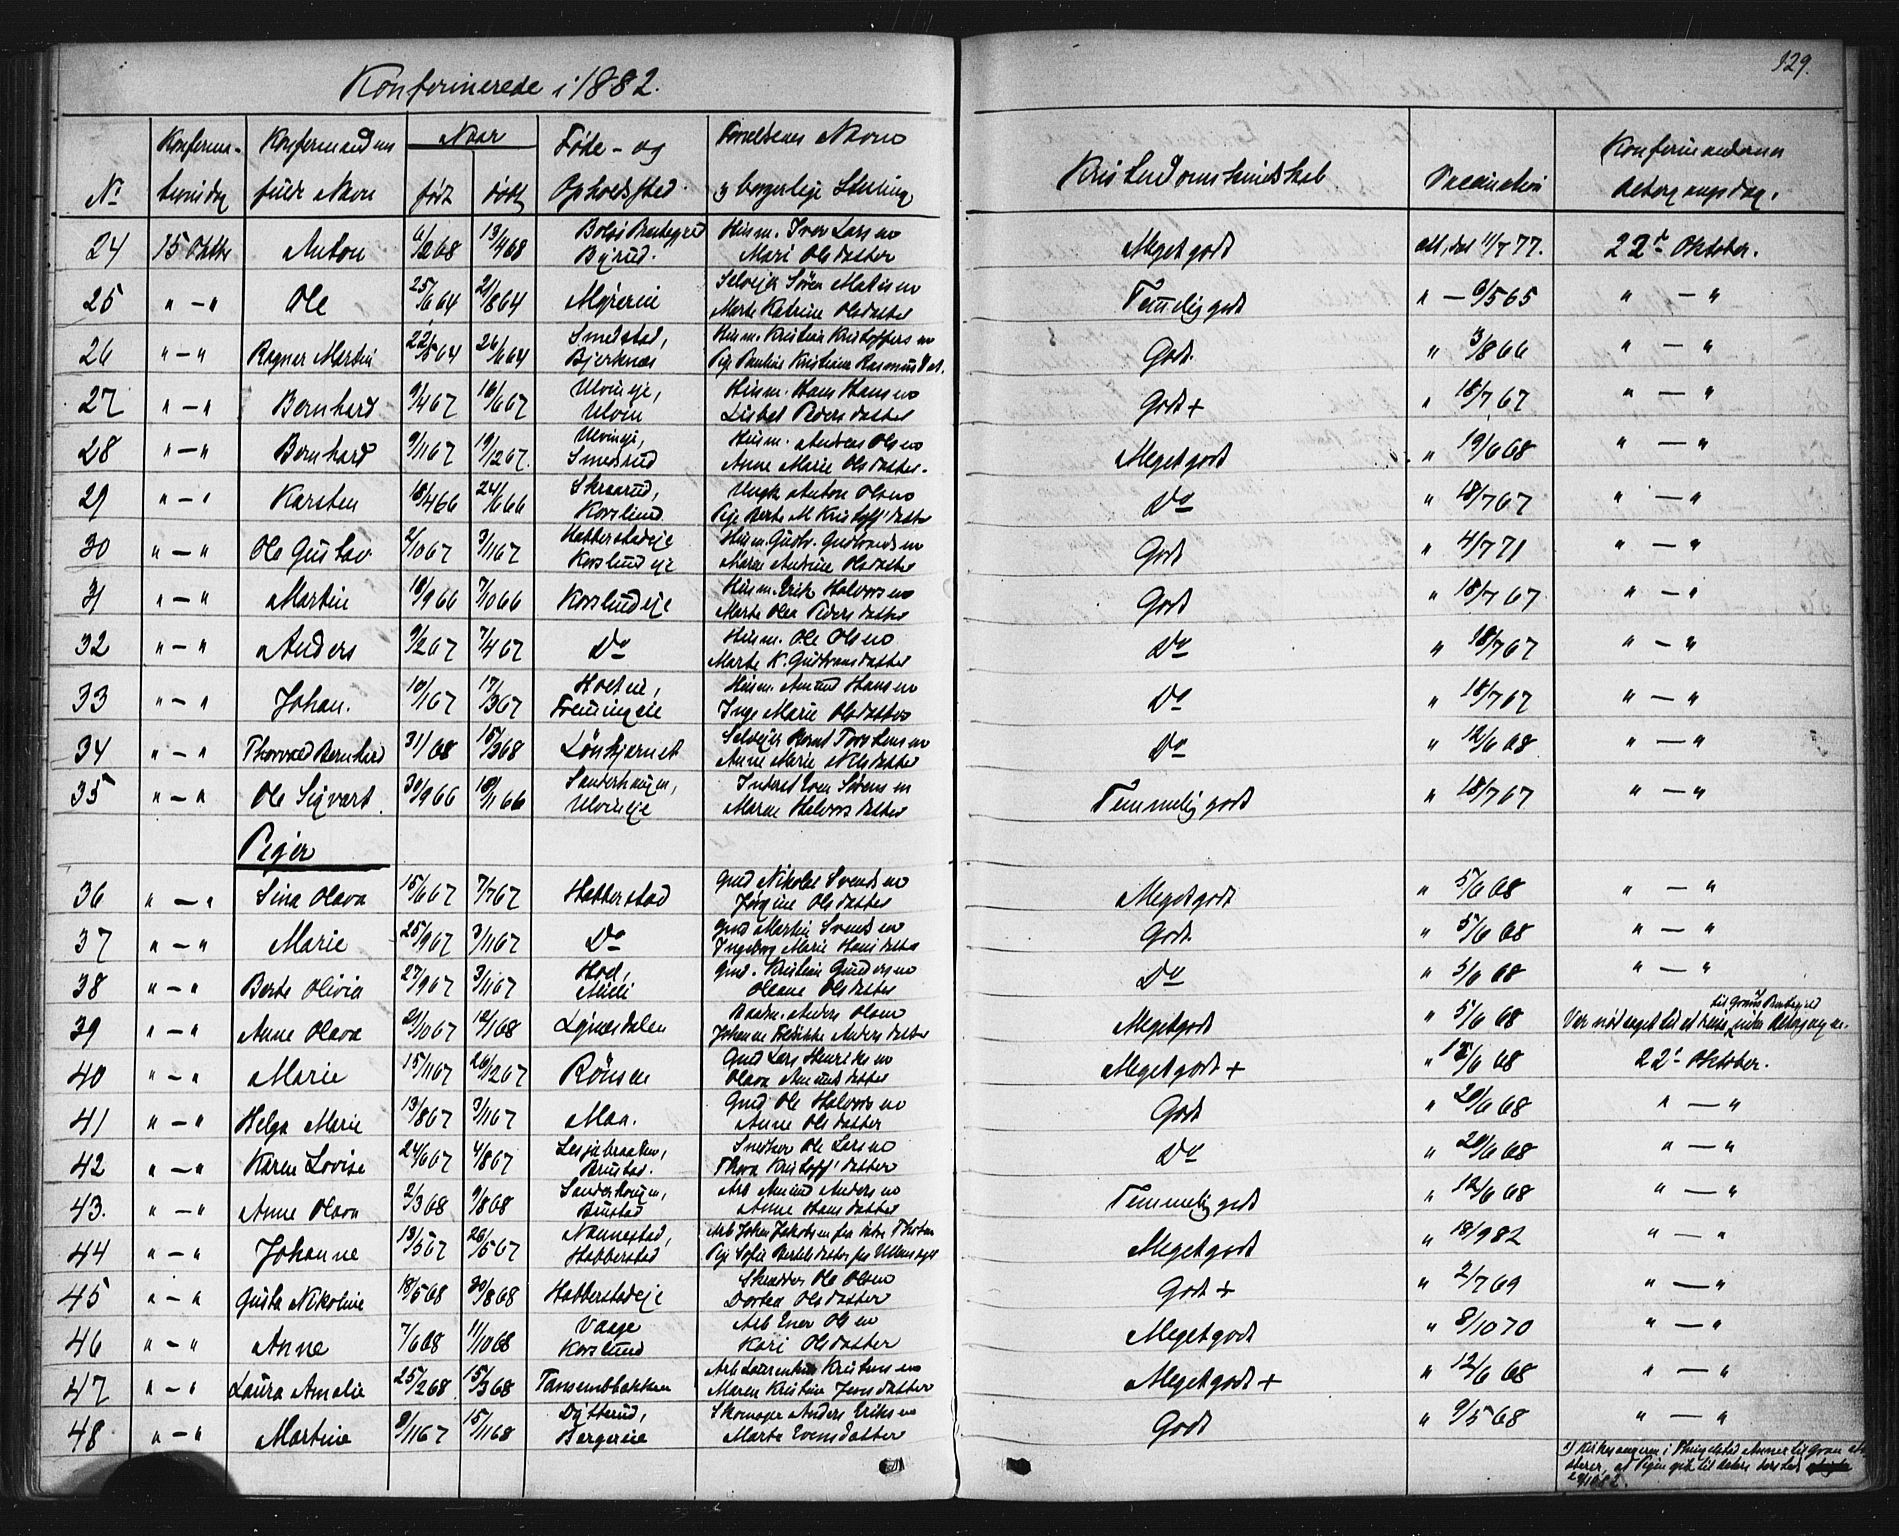 129.
Konfirmerede i 1882.
Nº | Konfirma- tionsdag | Konfirmandens fulde Navn | Naar født | døbt | Føde- og Opholdssted | Forældrenes Navne og borgerlige Stilling | Kristendomskundskab | Vaccination | Konfirmandernes Altergangsdag.
24 | 15 Oktbr | Anton | 6/2 68 | 13/4 68 | Bjørud. | Husm. Iver Larsen Mari Olsdatter | Meget godt | att. dat 11/7 77. | 22de Oktober.
25 | " — " | Ole | 25/6 64 | 21/8 64 | Myreeie | Selveier Søren Madsen Marte Katrine Olsdatter | Temmelig godt | " — 6/5 65 | " — "
26 | " — " | Ragner Martin | 22/5 64 | 26/6 64 | Smedstad, Bjerknæs | Husm. Kristian Kristoffersen Pige Pauline Kristiane Rasmusdat. | Godt. | " 3/8 66 | " — "
27 | " — " | Bernhard | 9/4 67 | 10/6 67 | Ulvineie, Ulvin | Husm. Hans Hansen Lisbet Pedersdatter | Godt + | " 18/7 67 | " — "
28 | " — " | Bernhard | 9/11 67 | 19/12 67. | Ulvineie, Smedsrud | Husm. Andreas Olsen Anne Marie Olsdatter. | Meget godt | " 19/6 68 | " — "
29 | " — " | Karsten | 18/4 66 | 24/6 66 | Skraarud, Korslund. | Ungk Anton Olsen Pige Berte M Kristoff'datter | Do | " 18/7 67 | " — "
30 | " — " | Ole Gustav | 2/10 67 | 3/11 67 | Habberstadeie Korslundeie | Husm. Gustv. Gudbrandsen Maren Andrine Olsdatter | Godt | " 4/7 71 | " — "
31 | " — " | Martin | 18/9 66 | 7/10 66 | Korslundeie | Husm. Erik Halvorsen Marte Olea Pedersdatter | Godt | " 18/7 67 | " — "
32 | " — " | Anders | 9/2 67 | 7/4 67 | Do | Husm. Ole Olsen Marte K. Gudbransdatter | Do | " 18/7 67 | " — "
33 | " — " | Johan. | 10/1 67 | 17/3 67 | Holteie, Fremingeie | Husm. Amund Hansen Inge Marie Olsdatter | Do | " 18/7 67 | " — "
34 | " — " | Thorvald Bernhard | 31/1 68 | 15/3 68 | Lønkjernet | Selveier Bernt Torstensen Anne Marie Nilsdatter | Do | " 12/6 68 | " — "
35 | " — " | Ole Sigvart. | 30/9 66 | 18/11 66 | Sanderhaugen, Ulvineie | Inderst Even Sørensen Maren Halvorsdatter | Temmelig godt | " 18/7 67 | " — "
Piger
36 | " — " | Sina Olava | 15/6 67 | 7/7 67 | Habberstad | Gmd Nikolai Svendsen Jørgine Olsdatter | Meget godt | " 5/6 68 | " — "
37 | " — " | Marie | 25/9 67 | 3/11 67 | Do | Gmd Martin Svendsen Ingeborg Marie Hansdatter | Godt. | " 5/6 68 | " — "
38 | " — " | Berte Olivia | 27/9 67 | 3/11 67 | Hol, | Gmd. Kristian Gundersen Oleane Olsdatter | Do | " 5/6 68 | " — "
39 | " — " | Anne Olava | 21/10 67 | 12/1 68 | Lynesdalen | Anders Olsen Johanne Andersdatter | Meget godt | " 5/6 68 | Var nødsaget til at reise til Grans Prestegjeld inden Altergangen.
40 | " — " | Marie | 15/11 67 | 26/12 67 | Rønsen | Gmd Lars Henriksen Olava Amundsdatter | Meget godt + | " 12/6 68 | 22de Oktober.
41 | " — " | Helga Marie | 13/8 67 | 3/11 67 | Maa. | Gmd Ole Halvorsen Anne Olsdatter | Godt | " 20/6 68 | " — "
42 | " — " | Karen Lovise | 24/6 67 | 4/8 67 | Lesjebraaten, Brustad. | Snedker Ole Larsen Thora Kristoff'datter | Do | " 20/6 68 | " — "
43. | " — " | Anne Olava | 2/3 68 | 9/8 68 | Sanderhaugen, Brustad | Arb Amund Andersen Anne Hansdatter | Temmelig godt | " 12/6 68 | " — "
44 | " — " | Johanne | 13/5 67 | 26/5 67 | Nannestad, Habberstad | Arb Johan Jakobsen fra østre Thoten Pige Sofie Bertelsdatter fra Ullensaker | Meget godt | " 18/9 82 | " — "
45 | " — " | Gusta Nikoline | 18/5 68 | 30/8 68 | Habberstadeie | Skrædder Ole Olsen Dortea Olsdatter | Godt + | " 2/7 69 | " — "
46 | " — " | Anne | 7/6 68 | 11/10 68 | Vaage Korslund | Arb Ener Olsen Kari Olsdatter | Meget godt | " 8/10 70 | " — "
47 | " — " | Laura Amalie | 25/2 68 | 15/3 68 | Tansenbakken | Arb Laurentius Kristensen Maren Kristine Jensdatter | Meget godt + | " 12/6 68 | " — "
48 | " — " | Martine | 9/11 67 | 15/11 68 | Dytterud, Bergereie | Skomager Anders Eriksen Marte Evensdatter | Godt | " 9/5 68 | " — "
1) Kirkesangeren i Thingelstad Annex til Gran
at Pigen gik til Alters dersteds